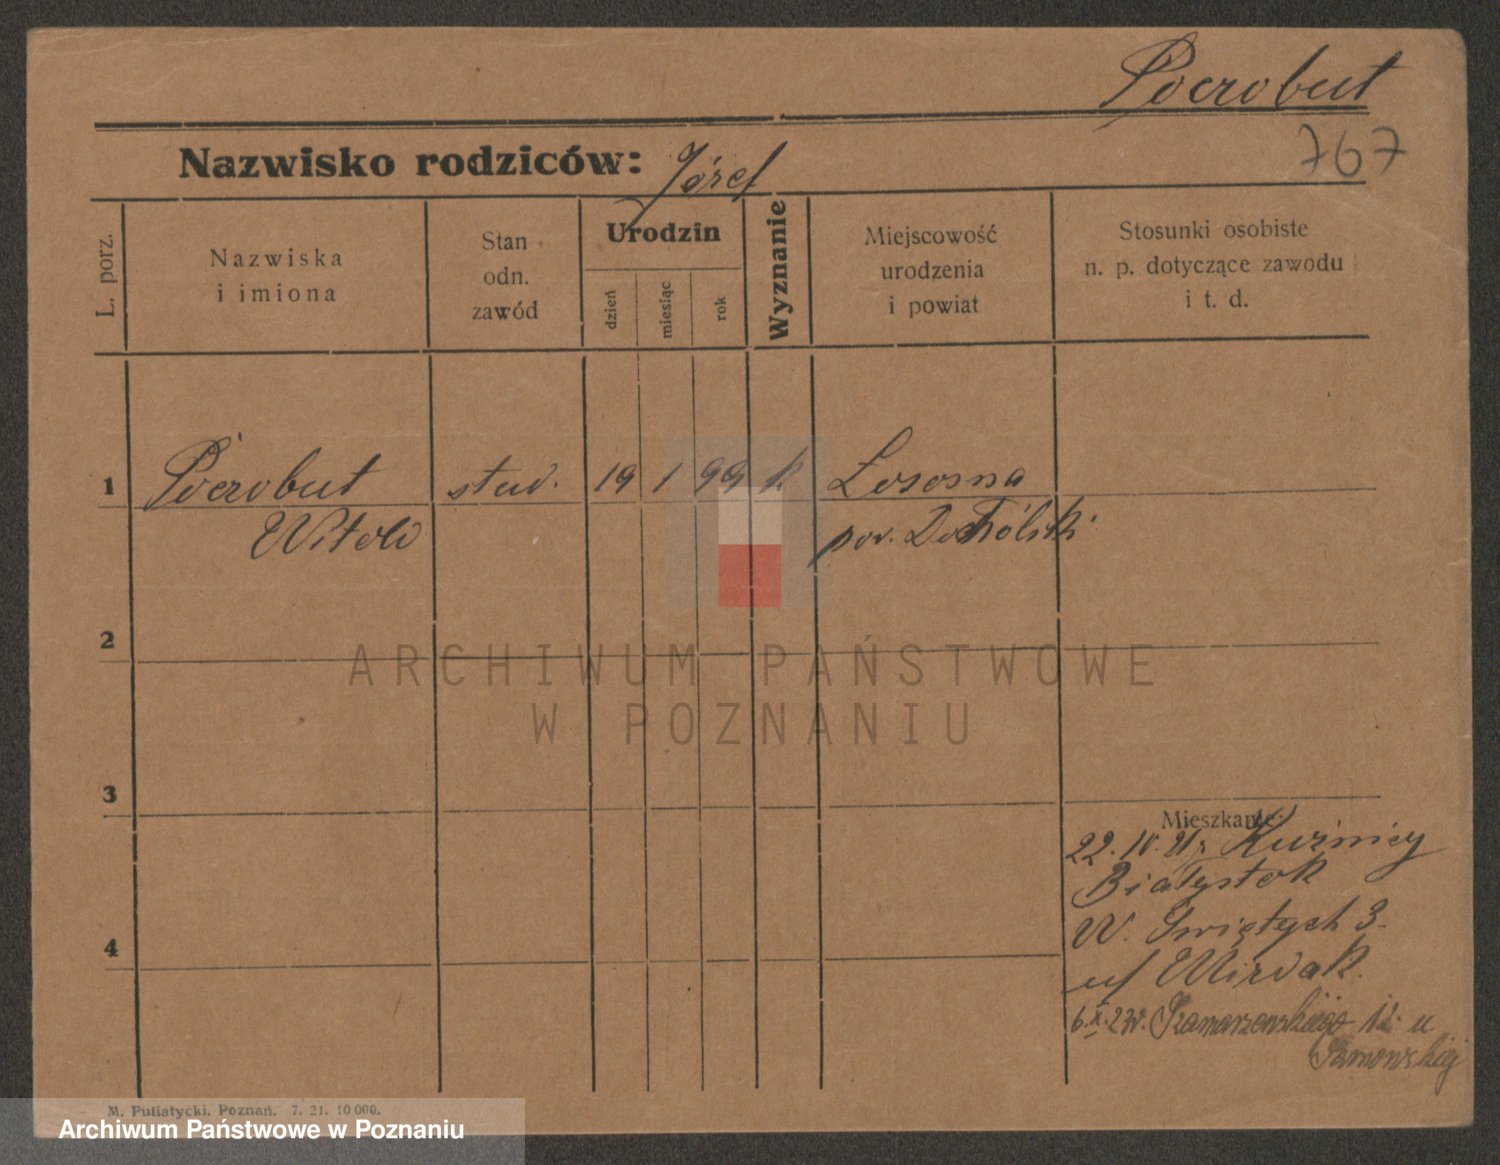 Pocrobut
767
Nazwisko rodziców: Józef
L. porz.
Nazwiska
i imiona
Stan
odn.
zawód
Urodzin
dzień
miesiąc
rok
Wyznanie
Miejscowość
urodzenia
i powiat
Stosunki osobiste
n. p. dotyczące zawodu
i t. d.
1 Pocrobut stud. 19 1 99 k Łososna
Witold pow.
2
ARCHIWUM PAŃSTWOWE
W POZNANIU
3
Mieszkanie:
22. IV. 21 r. Kuźnicy
Białystok
W. Świętych 3.
u/ Wizdak.
4
6.X.23r. Szamarzewskiego 12 u
M. Putiatycki, Poznań. 7. 21. 10 000.
Archiwum Państwowe w Poznaniu